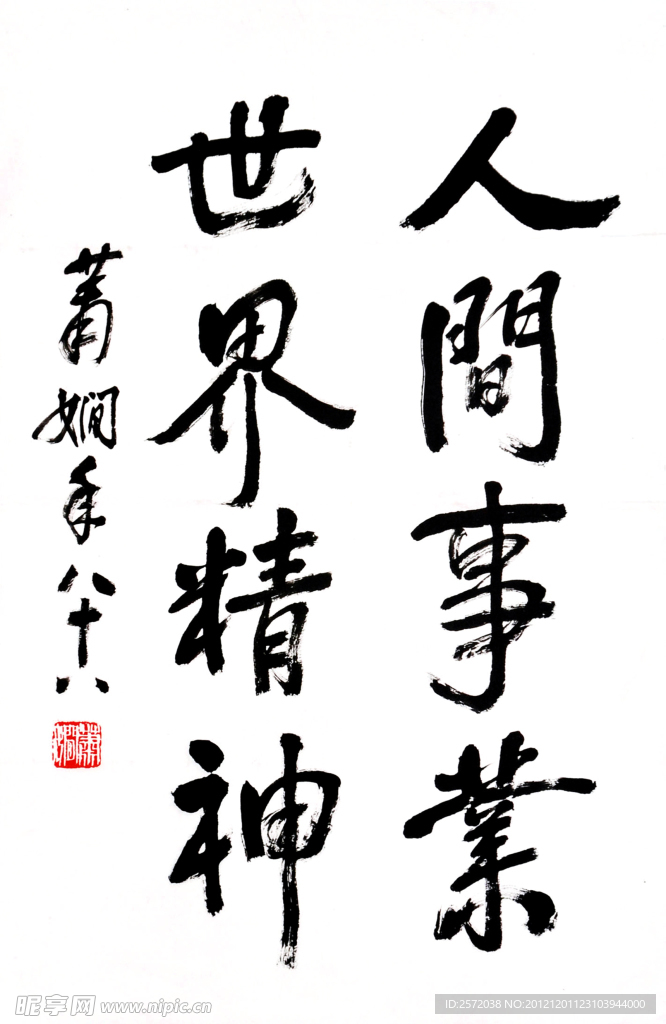 人間事業
世界精神
蕭嫻年八十八
蕭嫻
昵享网 www.nipic.cn
ID:2572038 NO:20121201123103944000